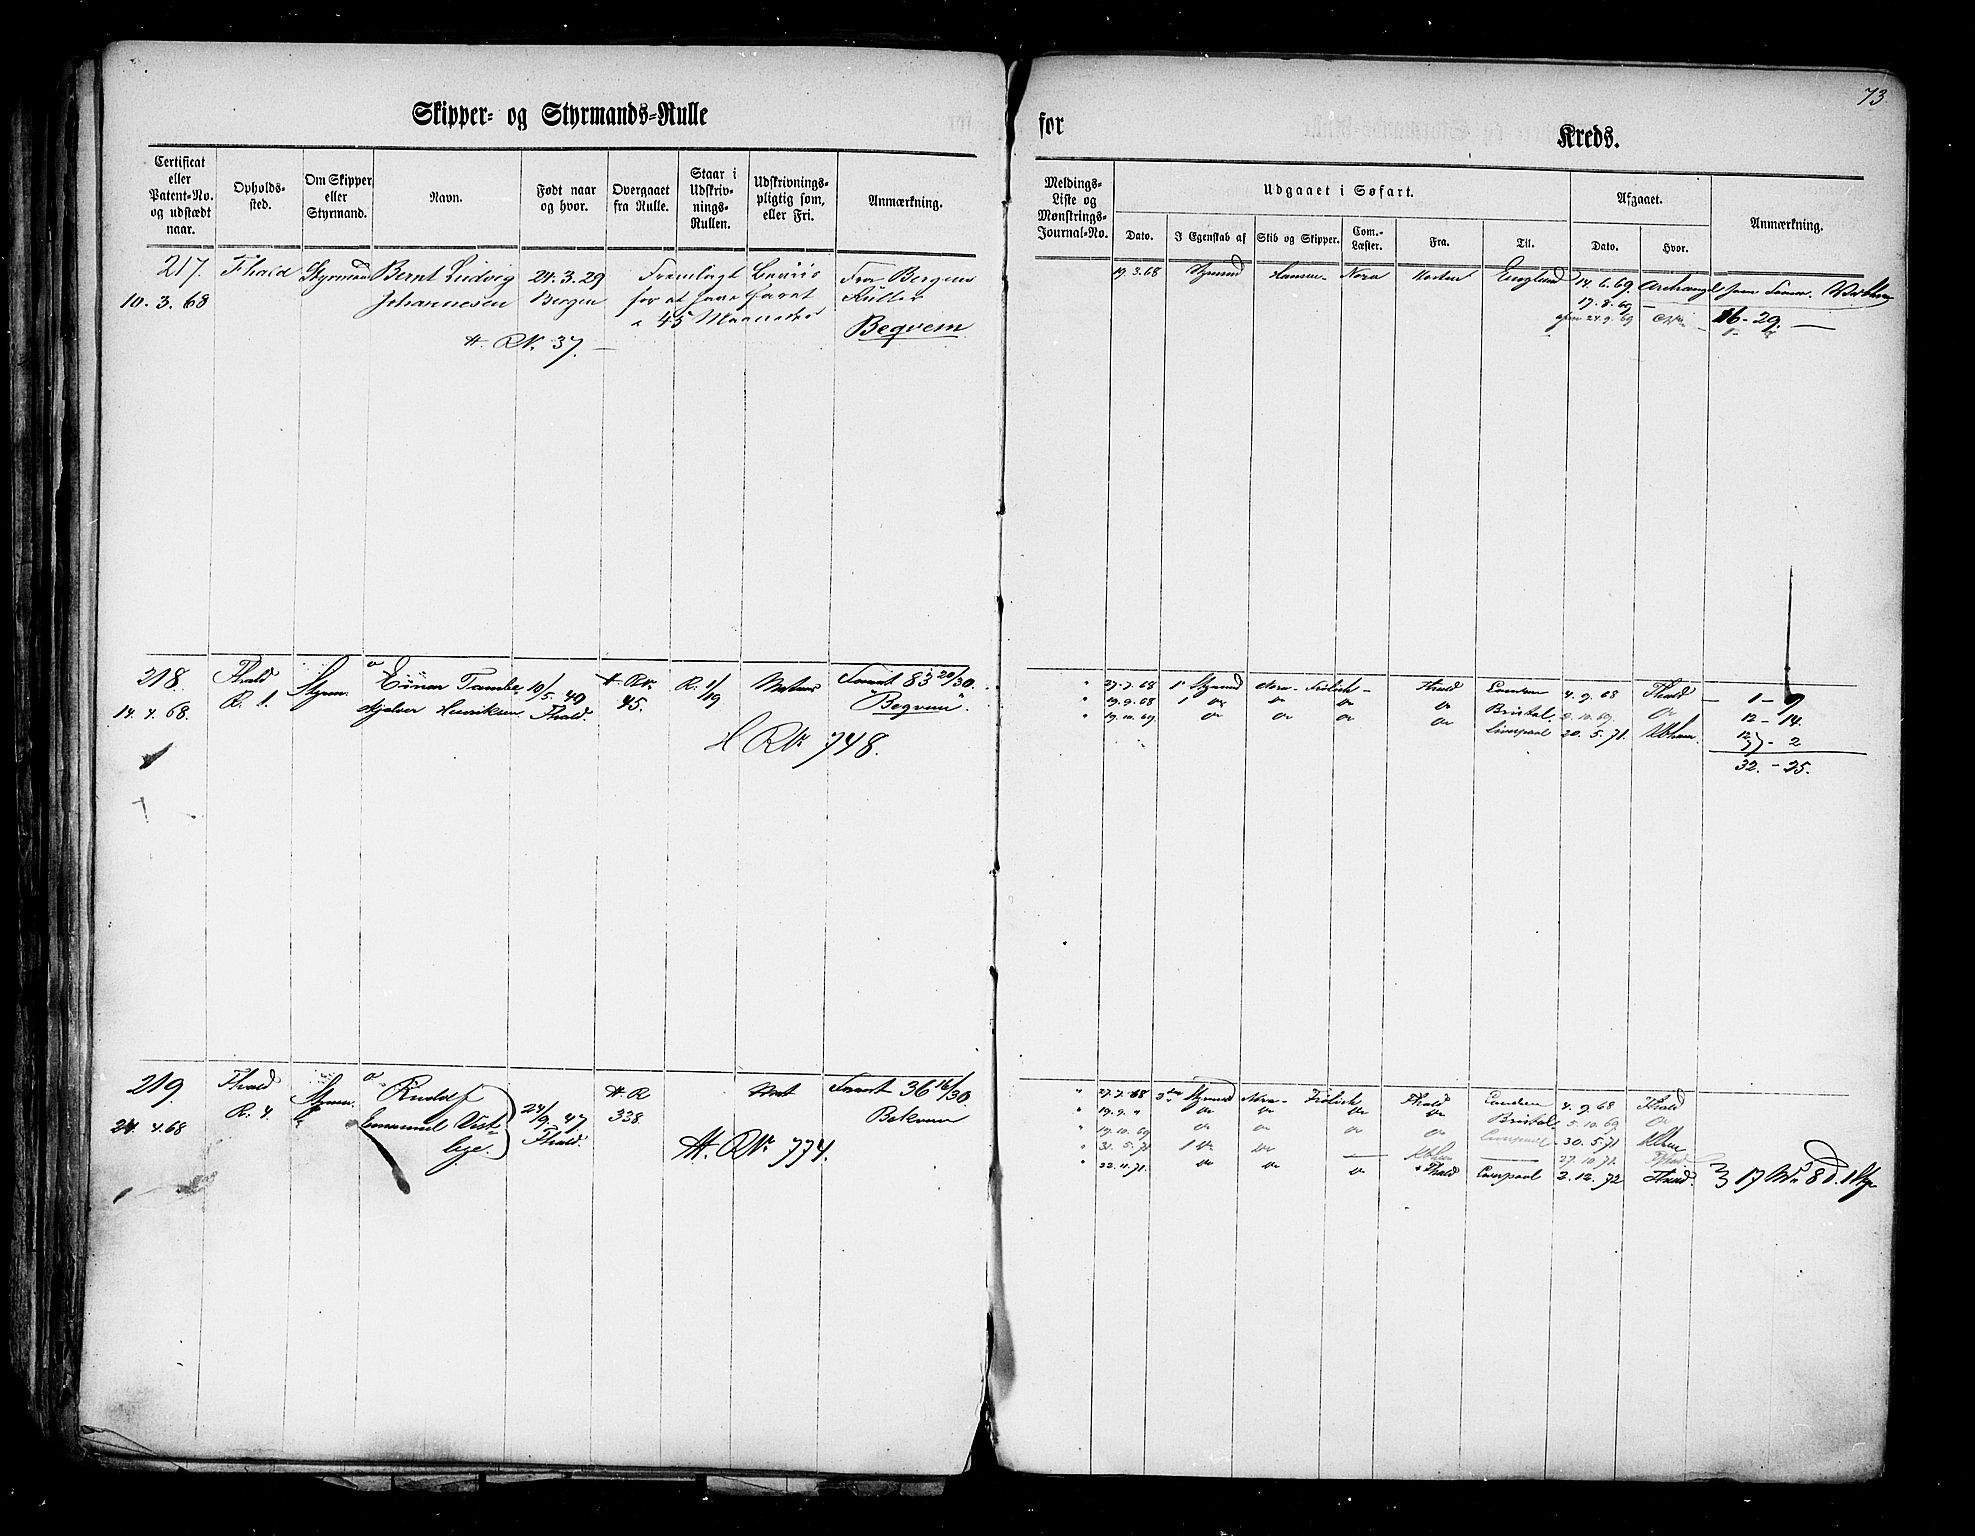 73
Skipper- og Styrmands-Rulle
for
Kreds.
Certificat eller Patent-No. og udstædt naar.
Opholds-sted.
Om Skipper eller Styrmand.
Navn.
Født naar og hvor.
Overgaaet fra Rulle.
Staar i Udskriv-nings-Rullen.
Udskrivnings-pligtig som, eller Fri.
Anmærkning.
Meldings-Liste og Mønstrings-Journal-No.
Udgaaet i Søfart.
Afgaaet.
Anmærkning.
Dato.
I Egenskab af
Skib og Skipper.
Com.-Læster.
Fra.
Til.
Dato.
Hvor.
217.
10. 3. 68
Fhald
Styrmand
Bernt Ludvig
Johannesen
24. 3. 29
Bergen
Fremlagt
for at have faret
45 Maaneder
Fra Bergens
Ruller
Begvem
H. RN. 37.
19. 3. 68
Styrmd
Hansen
Nora
England
14. 6. 69
Archangel
17. 8. 69
24. 9. 69
16 - 29.
218.
14. 4. 68.
Fhald
R. 1.
Styrm.
Einar Tambs
Hjelver Henriksen
10/5. 40
Fhald.
H. RN.
45.
R. 1/19
Matros
Faret 83 20/30.
"Begvem"
H RN 748.
" 27. 7. 68 1 Styrmd Nora - Frölich - Fhald London 4. 9. 68 Fhald 1 - 9
" 19. 9. 68 1 do do do do Bristol 5. 10. 69 do 12 - 14.
" 19. 10. 69 do do do do Liverpool 30. 5. 71. Kbhavn. - 2
32. - 25.
219
24. 4. 68
Fhald
R. 4.
Styrm.
Rudolf
Emanuel Vist-
lye.
24/9. 47.
Fhald.
H. R
338.
Mat
Faret 36 16/30.
Bekvem
H. RN. 774.
" 27. 7. 68 Styrmd Nora - Frölich Fhald London 4. 9. 68 Fhald
" 19. 9. " do do do do Bristol 5. 10. 69 do
" 19. 10. 69 do do do do Liverpool 30. 5. 71 Kbhn
" 31. 5. 71 1 do do — Kbhn — 27. 10. 71. Fhald
" 22. 11. 71. do do do Fhald Liverpool 2. 12. 72 Fhald. 17 Mr 8 d. 1 Sty